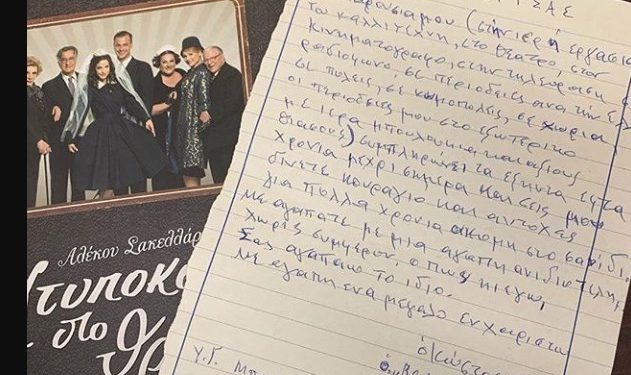 ΤΣΑΣ
παρουσία μου (στην ιερή εργασία
του καλλιτέχνη, στο θέατρο, στον
κινηματογράφο, στην τηλεόραση,
ραδιόφωνο, σε περιοδείες ανά την
σε πόλεις, σε κωμοπόλεις, σε χωριά
οι περιοδείες μου στο εξωτερικό
με ιερά μπουλούκια και αξίους
θιάσους) συμπληρώνει τα εξήντα εφτά
χρόνια μέχρι σήμερα και σεις μου
δίνετε κουράγιο και αντοχές
για πολλά χρόνια ακόμη στο σανίδι.
Με αγαπάτε με μια αγάπη ανιδιοτελή,
χωρίς συμφέρον όπως κι εγώ,
Σας αγαπάω το ίδιο.
Με αγάπη ένα μεγάλο ευχαριστώ
ο Κώστας
Υ.Γ.
Αλέκου Σακελλάρ
Ξυποκ
στο
θρ